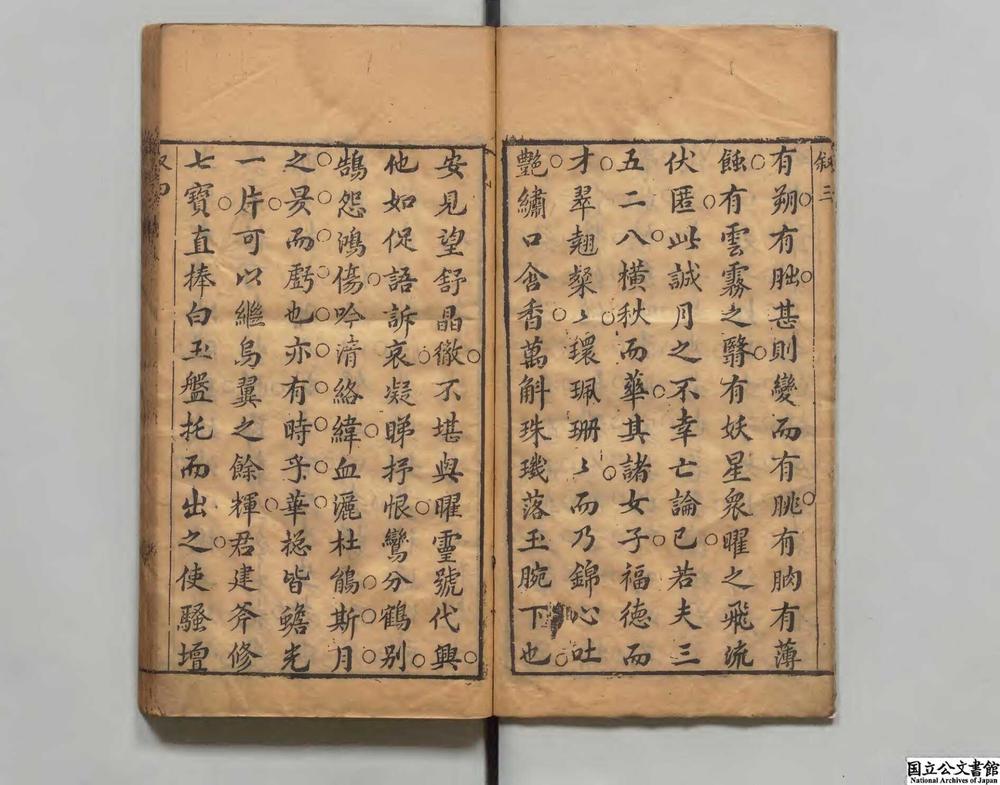 敘三
有朔有朏甚則變而有朓有朒有薄
蝕有雲霧之翳有妖星衆曜之飛流
伏匿此誠月之不幸亡論已若夫三
五二八橫秋而華其諸女子福德而
才翠翹粲〻環珮珊〻而乃錦心吐
艷繡口含香萬斛珠璣落玉腕下也
安見望舒晶徹不堪與曜靈號代興
他如促語訴哀凝睇抒恨鸞分鶴别
鵠怨鴻傷吟淸絡緯血灑杜鵑斯月
之昃而虧也亦有時乎華捴皆蟾光
一片可以繼烏翼之餘輝君建斧修
七寶直捧白玉盤托而出之使騷壇
国立公文書館
National Archives of Japan